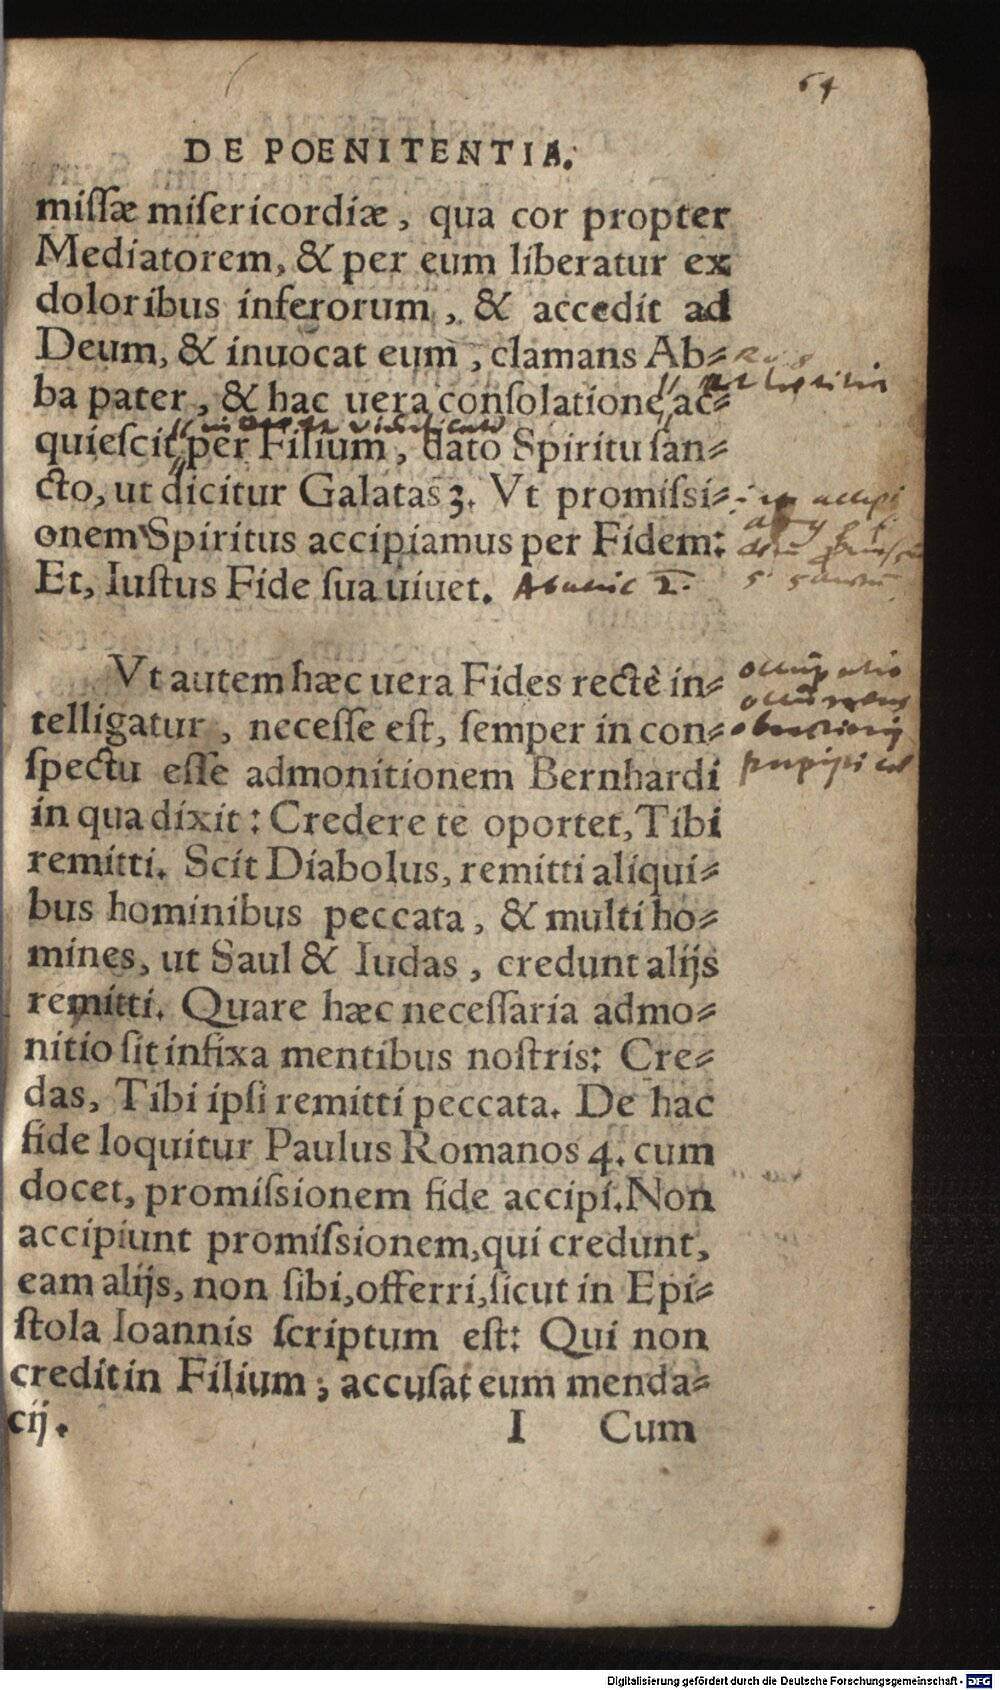 64
DE POENITENTIA.
miſſæ miſericordiæ, qua cor propter
Mediatorem, & per eum liberatur ex
doloribus inferorum, & accedit ad
Deum, & inuocat eum, clamans Ab⸗
ba pater, & hac uera conſolatione, ac⸗
quieſcit per Filium, dato Spiritu ſan⸗
cto, ut dicitur Galatas 3. Vt promiſsi⸗
onem Spiritus accipiamus per Fidem:
Et, Iuſtus Fide sua uiuet. Abacuc 2.
Vt autem hæc uera Fides rectè in⸗
telligatur, neceſſe eſt, ſemper in con⸗
ſpectu eſſe admonitionem Bernhardi
in qua dixit: Credere te oportet, Tibi
remitti. Scit Diabolus, remitti aliqui⸗
bus hominibus peccata, & multi ho⸗
mines, ut Saul & Iudas, credunt alijs
remitti. Quare hæc neceſſaria admo⸗
nitio ſit infixa mentibus noſtris: Cre⸗
das, Tibi ipſi remitti peccata. De hac
fide loquitur Paulus Romanos 4. cum
docet, promiſsionem fide accipi. Non
accipiunt promiſsionem, qui credunt,
eam alijs, non ſibi, offerri, ſicut in Epi⸗
ſtola Ioannis ſcriptum eſt: Qui non
credit in Filium, accuſat eum menda⸗
cij.
I Cum
occupatio
Digitalisierung gefördert durch die Deutsche Forschungsgemeinschaft - DFG